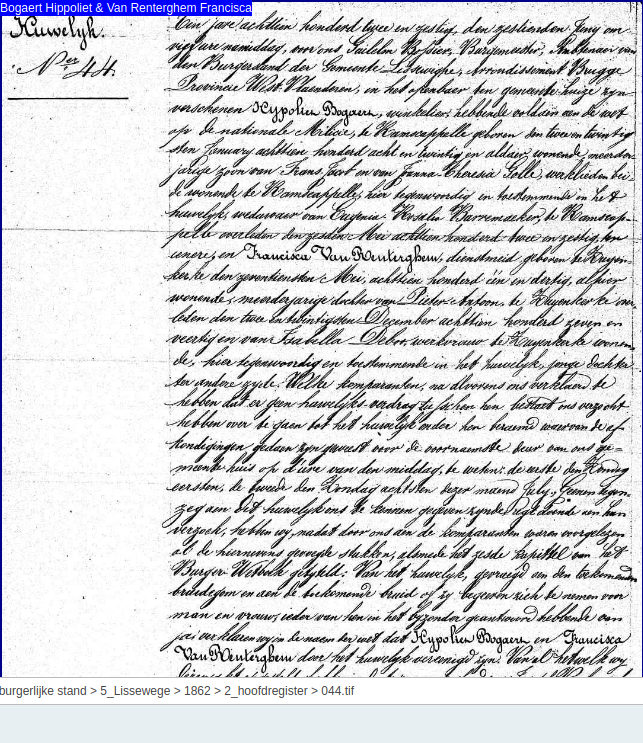 Bogaert Hippoliet & Van Renterghem Francisca
Huwelyk.
Ner 44.
Ten jare achttien honderd twee en zestig, den
vier ure namiddag, voor ons Burgemeester, Ambtenaar van
den Burgerstand der Gemeente Lisseweghe, Arrondissement Brugge
Provincie West Vlaenderen, en het openbaer ten gemeente huize zyn
verschenen Hypoliet Bogaert, winkelier, hebbende voldaen aen de wet
op de nationale Militie, te Ramscappelle geboren den twee en twintig
sten January achttien honderd acht en twintig en aldaer wonende, meerder
jarige zoon van Frans Jacob en van Joanna Theresia werklieden bei
de wonende te Ramscappelle, hier tegenwoordig en toestemmende in het
huwelyk, weduwaer van Eugenia Rosalie te Ramscap
pelle overleden den zesden Mei achttien honderd twee en zestig, ter
eenere, en Francisca Van Renterghem, dienstmeid geboren te Zuyen
kerke den zeventiensten Mei, achttien honderd één en dertig, alhier
wonende, meerderjarige dochter van Pieter Antoon, te Zuyenkerke over
leden den twee en twintigsten December achttien honderd zeven en
veertig en van Isabella werkvrouw te Zuyenkerke wonen
de, hier tegenwoordig en toestemmende in het huwelyk, jonge dochter
ter andere zyde. Welke komparanten, na alvorens ons verklaerd te
hebben dat er geen huwelyks verdrag tusschen hen bestaet ons verzocht
hebben over te gaen tot het huwelyk onder hen beraemd waervan de af
kondigingen gedaen zyn geweest voor de voornaemste deur van ons ge=
meente huis op d'ure van den middag, te weten: de eerste den Zondag
eersten, de tweede den Zondag achtsten dezer maend July. Geenen tegen
zeg aen dit huwelyk ons te kennen gegeven zynde regt doende aen hun
verzoek, hebben wy, nadat door ons aen de komparanten waren voorgelezen
al de hiernevens gevoegde stukken, alsmede het zesde kapittel van het
Burger Wetboek getyteld: Van het huwelyk, gevraegd aen den toekomenden
bruidegom en aen de toekomende bruid of zy begeeren zich te nemen voor
man en vrouw, ieder van hen in het byzonder geantwoord hebbende van
ja, verklaren wy in de naem der wet dat Hypoliet Bogaert en Francisca
Van Renterghem door het huwelyk vereenigd zyn. Van al hetwelk wy
burgerlijke stand > 5_Lissewege > 1862 > 2_hoofdregister > 044.tif